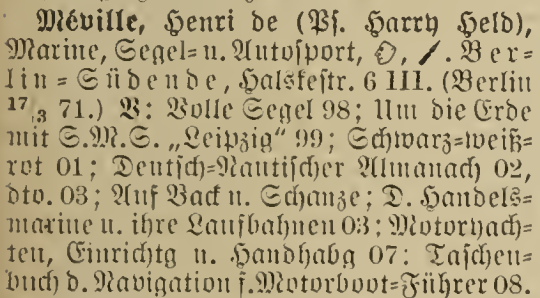 Méville, Henri de (Ps. Harry Held),
Marine, Segel= u. Autosport, Berlin=Südende, Halskestr. 6 III. (Berlin
17/3 71.) B: Volle Segel 98; Um die Erde
mit S.M.S. „Leipzig“ 99; Schwarz=weiß=
rot 01; Deutsch=Nautischer Almanach 02,
dto. 03; Auf Back u. Schanze; D. Handels=
marine u. ihre Laufbahnen 03; Motoryach=
ten, Einrichtg u. Handhabg 07; Taschen=
buch d. Navigation f. Motorboot=Führer 08.